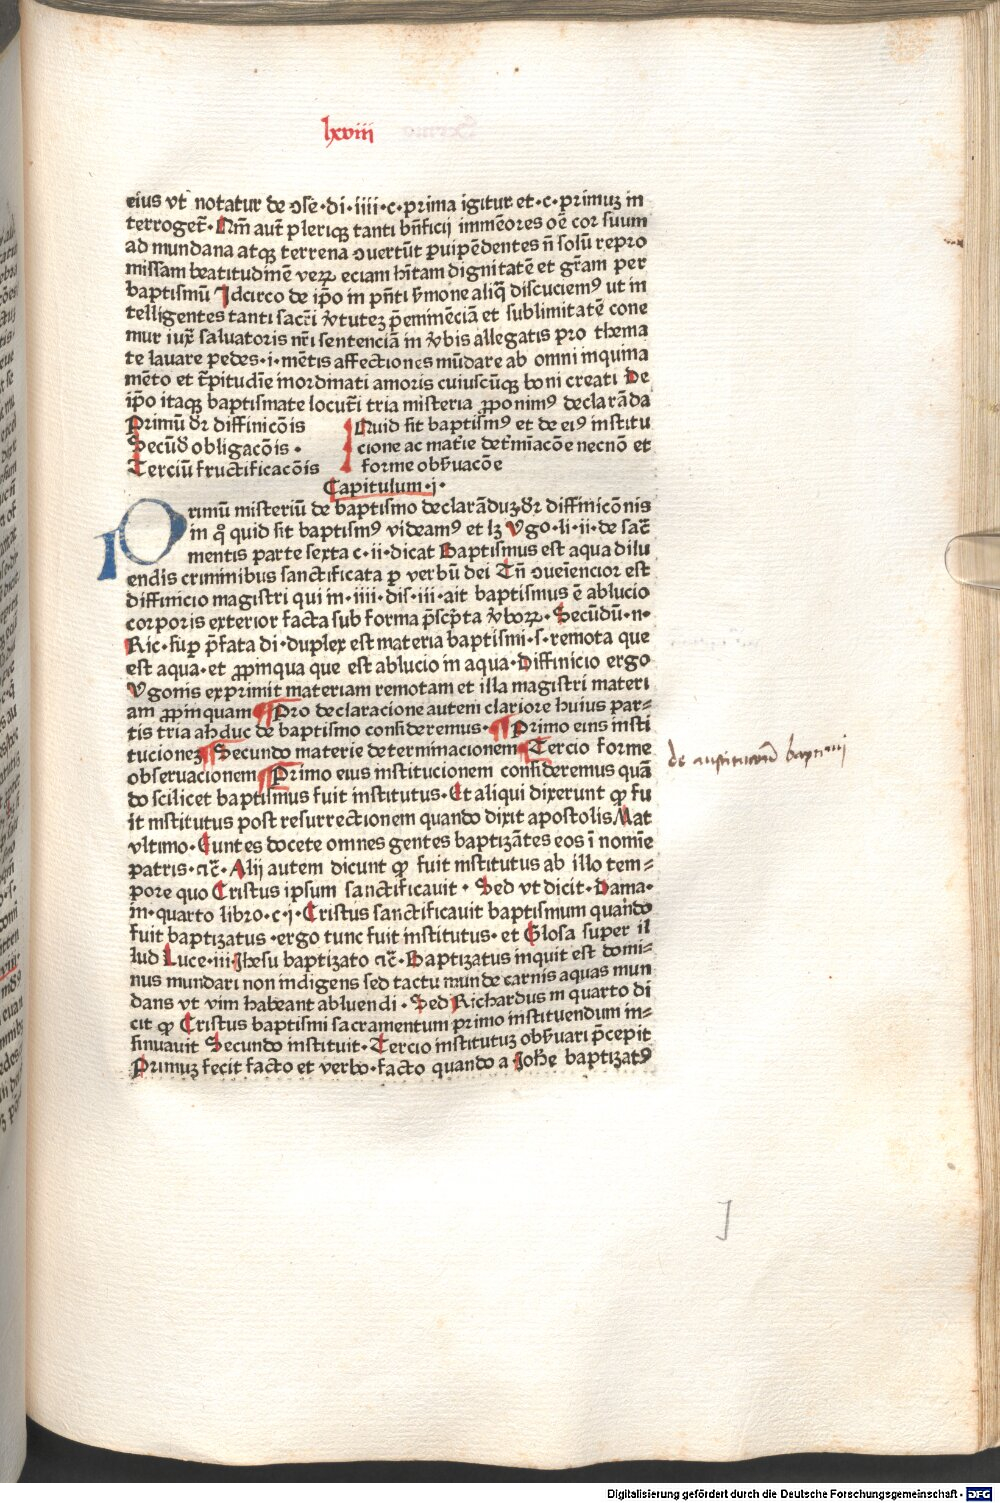 lxviii
eius vt notatur de ↄse·di·iiii·c·prima igitur et·c·primuꝫ in
terroget̄·Qm̄ aut̄ pleriqꝫ tanti bn̄ficij immēores oē cor suum
ad mundana atqꝫ terrena ↄuertūt ꝑuipēdentes n̄ solū repro
missam beatitudinē veꝝ eciam hītam dignitatē et gr̄am per
baptismū Idcirco de ip̄o in pn̄ti ẜmone aliq̄ discuciemꝰ ut in
telligentes tanti sacr̄i v̓tuteꝫ p̄eminēciā et sublimitatē cone
mur iux̄ saluatoris nr̄i sentenciā in v̓bis allegatis pro thema
te lauare pedes·i·mētis affectiones mūdare ab omni inquina
mēto et t̄pitudīe inordinati amoris cuiuscūqꝫ boni creati De
ip̄o itaqꝫ baptismate locut̄i tria misteria ꝓponimꝰ declarāda
Primū dr̄ diffinicōis
Secūdo obligacōis·
Terciū fructificacōis
Quid sit baptismꝰ et de eiꝰ institu
cione ac mat̄ie det̄mīacōe necnō et
forme obẜuacōe
Capitulum·i·
Primū misteriū de baptismo declarāduꝫ dr̄ diffinicōnis
in qͦ quid sit baptismꝰ videamꝰ et lꝫ Vgo·li·ii·de sacr̄
mentis parte sexta c·ii·dicat Baptismus est aqua dilu
endis criminibus sanctificata ꝑ verbū dei Tn̄ ↄueīencior est
diffinicio magistri qui in·iiii·dis·iii·ait baptismus ē ablucio
corporis exterior facta sub forma p̄scp̄ta v̓boꝝ·Secūdū·n·
Ric·sup̄ p̄fata di·duplex est materia baptismi·s·remota que
est aqua·et ꝓpinqua que est ablucio in aqua·Diffinicio ergo
Vgonis exprimit materiam remotam et illa magistri materi
am ꝓpinquam ¶ Pro declaracione autem clariore huius par⸗
tis tria adhuc de baptismo consideremus·¶ Primo eius insti
tucioneꝫ ¶ Secundo materie determinacionem ¶ Tercio forme
obseruacionem ¶ Primo eius institucionem consideremus quā
do scilicet baptismus fuit institutus·Et aliqui dixerunt ꝙ fu
it institutus post resurrectionem quando dixit apostolis Mat
vltimo·Euntes docete omnes gentes baptizātes eos ī nomīe
patris·⁊c̄·Alij autem dicunt ꝙ fuit institutus ab illo tem⸗
pore quo Cristus ipsum sanctificauit·Sed vt dicit·Dama·
in·quarto libro·c·i·Cristus sanctificauit baptismum quando
fuit baptizatus·ergo tunc fuit institutus·et Glosa super il
lud Luce·iii·Jhesu baptizato ⁊c̄·Baptizatus inquit est domi⸗
nus mundari non indigens sed tactu munde carnis aquas mun
dans vt vim habeant abluendi·Sed Richardus in quarto di
cit ꝙ Cristus baptismi sacramentum primo instituendum in⸗
sinuauit Secundo instituit·Tercio institutuꝫ obẜuari p̄cepit
Primuꝫ fecit facto et verbo·facto quando a Joh̄e baptizatꝰ
Digitalisierung gefördert durch die Deutsche Forschungsgemeinschaft - DFG